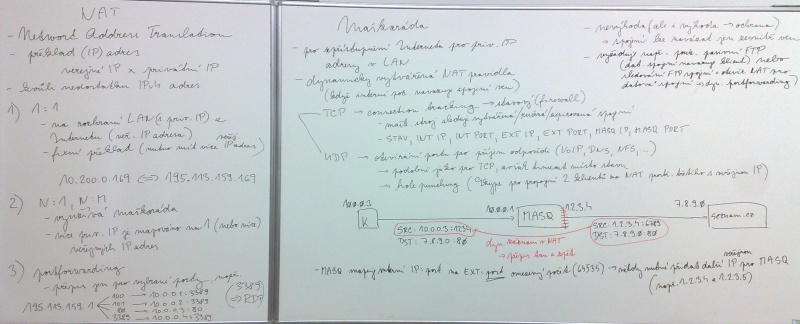 NAT
- Network Address Translation
- překlad (IP) adres
veřejná IP x privátní IP
- kvůli nedostatku IPv4 adres
1) 1:1
- na rozhraní LAN (s priv. IP) a
Internetu (veř. IP adresa)
- fixní překlad (nutno mít více veřej. IP adres)
10.200.0.169 <=> 195.113.159.169
2) N:1, N:M
- využívá maškaráda
- více priv. IP je mapováno na 1 (nebo více)
veřejných IP adres
3) portforwarding
- přepis jen pro vybrané porty, např.
195.113.159.1
100 → 10.0.0.1:3389
101 → 10.0.0.2:3389
80 → 10.0.0.3:80
3389 → 10.0.0.4:3389
(3389 => RDP)
Maškaráda
- pro zpřístupnění Internetu pro priv. IP
adresy v LAN
- dynamicky vytvářená NAT pravidla
(když interní poč. navazuje spojení ven)
TCP → connection tracking → stavový (firewall)
- mašk. stroj sleduje vytvářená/rušená/expirovaná spojení
- STAV, INT IP, INT PORT, EXT IP, EXT PORT, MASQ IP, MASQ PORT
UDP → otevírání portu pro příjem odpovědi (VoIP, DNS, NFS, ...)
→ podobný jako pro TCP, avšak timeout místo stavu
→ hole punching (Skype pro propojení 2 klientů za NAT
- nevýhoda (ale i výhoda → ochrana)
→ spojení lze navázat jen zevnitř ven
- vyžaduje např. pasivní FTP
(dat. spojení navazuje klient) nebo
sledování FTP spojení a otevření NAT pro
datová spojení → dyn. portforwarding
10.0.0.3
K
10.0.0.1
MASQ
1.2.3.4
7.8.9.0
seznam.cz
SRC: 10.0.0.3:1234
DST: 7.8.9.0:80
SRC: 1.2.3.4:6789
DST: 7.8.9.0:80
dyn. záznam v NAT
→ přepis tam a zpět
- MASQ mapuj interní IP:port na EXT:port omezený počet (65535) → někdy nutné přidat další veřejnou IP pro MASQ
(např. 1.2.3.4 a 1.2.3.5)